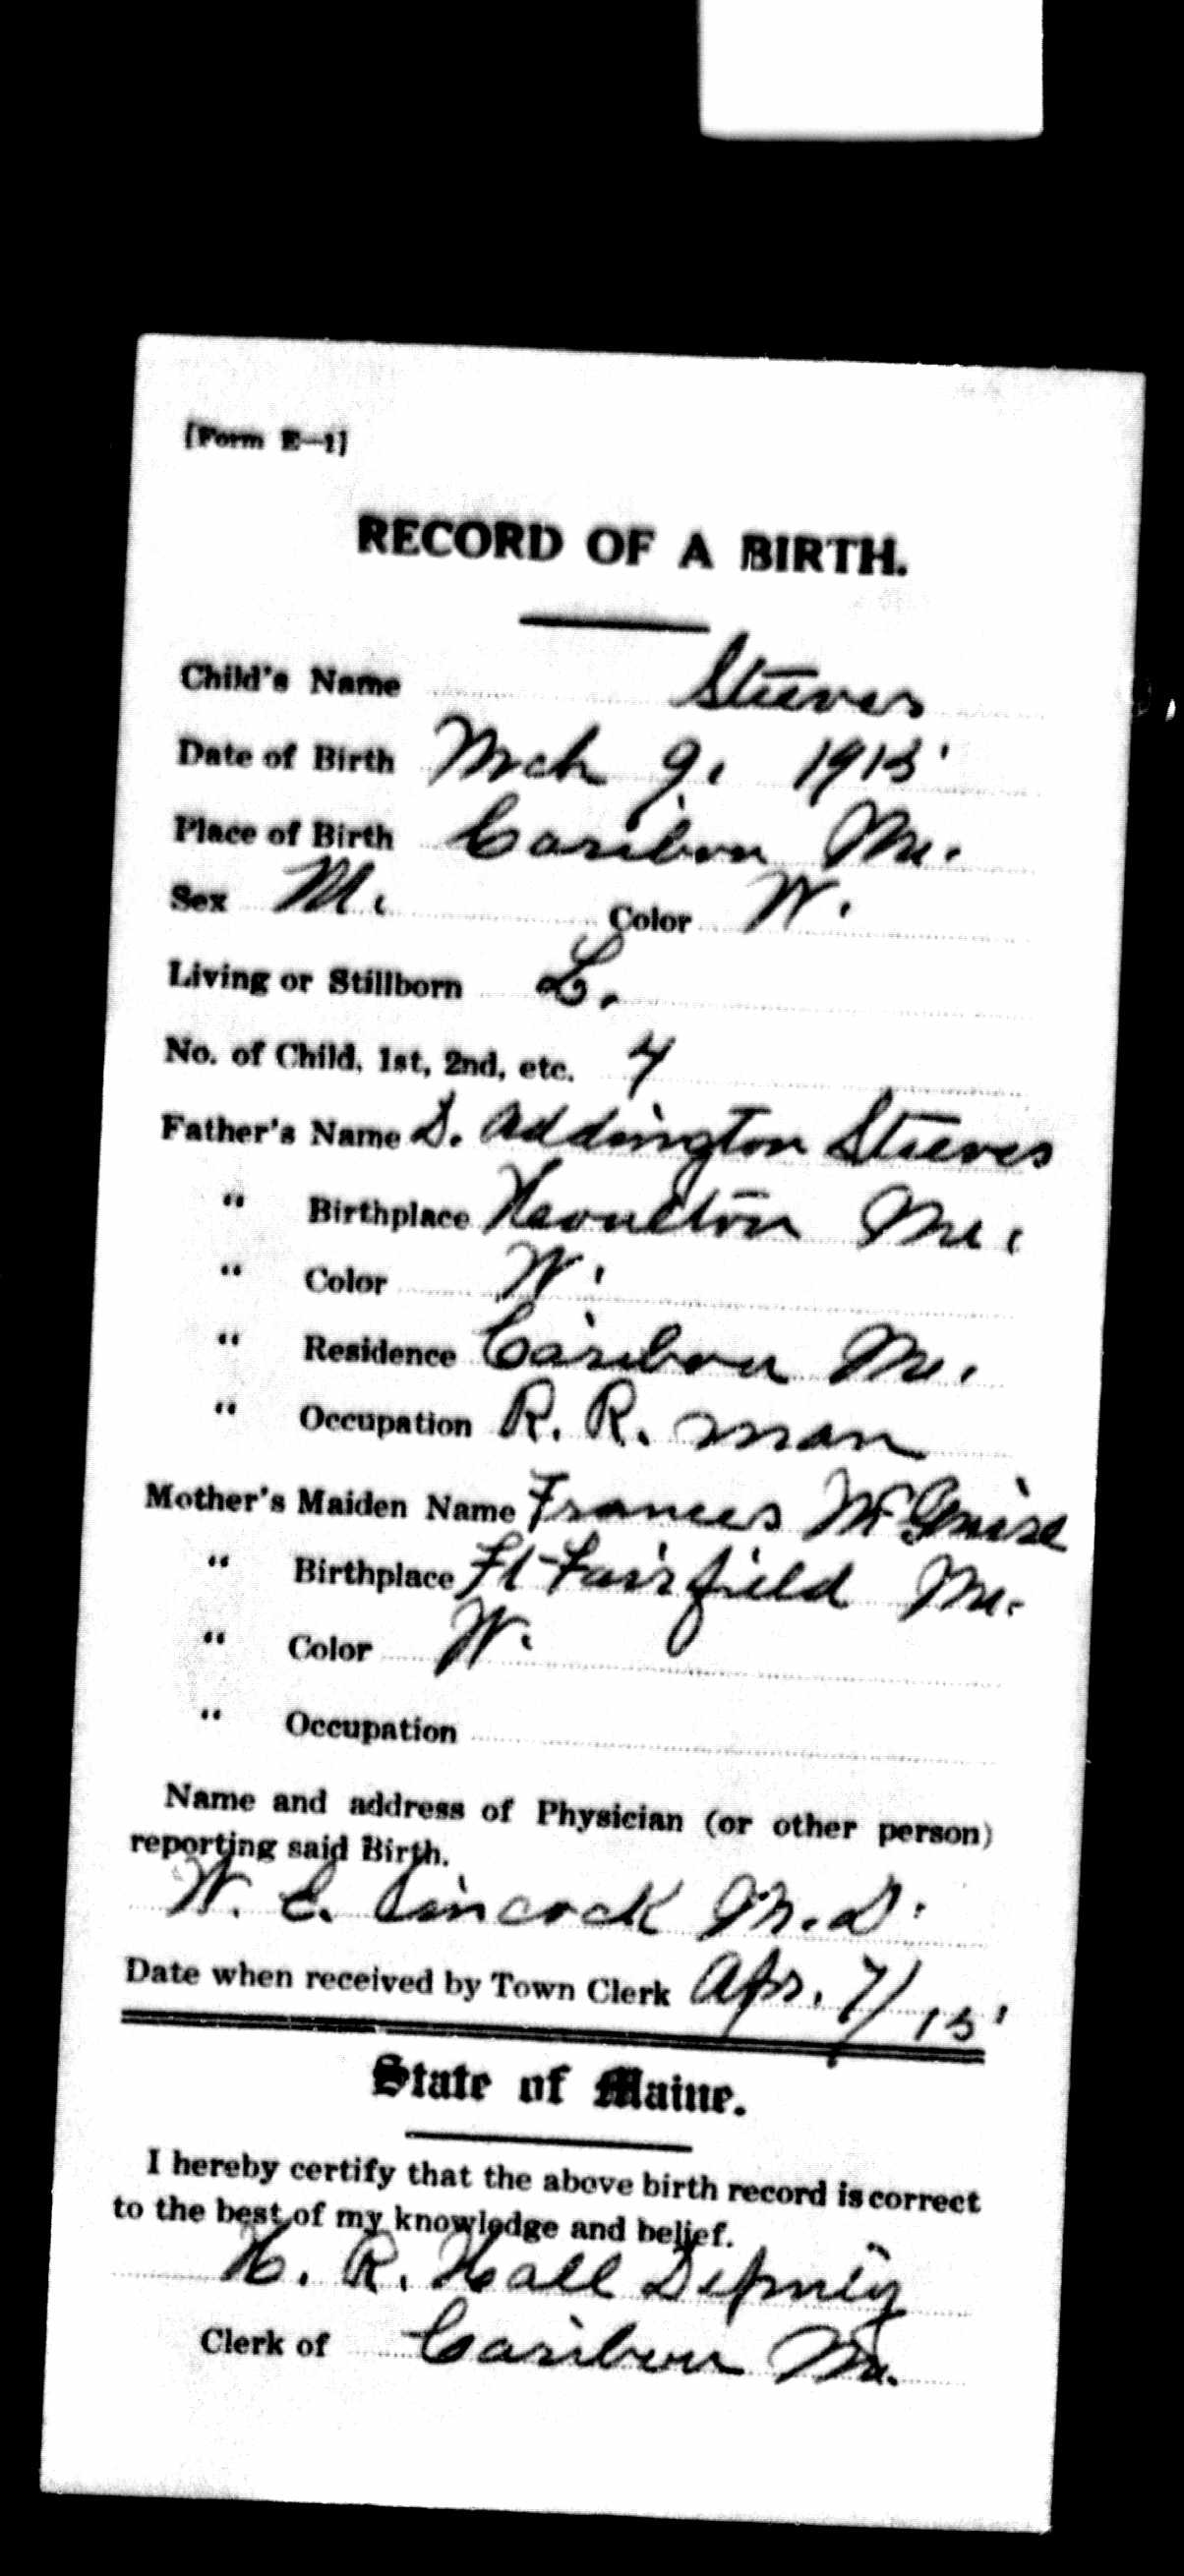 [Form E—1]
RECORD OF A BIRTH.
Child's Name Steeves
Date of Birth Mch 9, 1915
Place of Birth Caribou Me.
Sex M. Color W.
Living or Stillborn L.
No. of Child, 1st, 2nd, etc. 4
Father's Name D. Addington Steeves
" Birthplace Haoulton Me.
" Color W.
" Residence Caribou Me.
" Occupation R. R. man
Mother's Maiden Name Frances McGuire
" Birthplace Ft Fairfield Me.
" Color W.
" Occupation
Name and address of Physician (or other person)
reporting said Birth.
W. E. M. D.
Date when received by Town Clerk Apr. 7/15
State of Maine.
I hereby certify that the above birth record is correct
to the best of my knowledge and belief.
H. R. Hall Deputy
Clerk of Caribou Me.